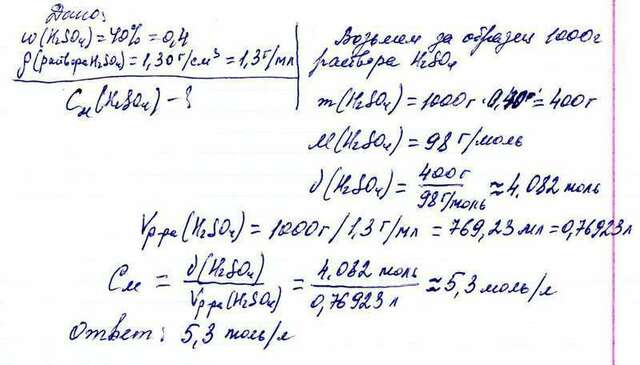 Дано:
w(H₂SO₄)=40%=0,4
ρ(раствора H₂SO₄)=1,30 г/см³=1,3 г/мл
Cм(H₂SO₄)-?
Возьмем за образец 1000г
раствора H₂SO₄
m(H₂SO₄)=1000г·0,40=400г
M(H₂SO₄)=98 г/моль
ν(H₂SO₄)=400г/98г/моль≈4.082 моль
Vр-ра(H₂SO₄)=1000г/1,3г/мл=769,23 мл=0,76923л
Cм=ν(H₂SO₄)/Vр-ра(H₂SO₄)=4.082 моль/0,76923 л≈5,3 моль/л
Ответ: 5,3 моль/л